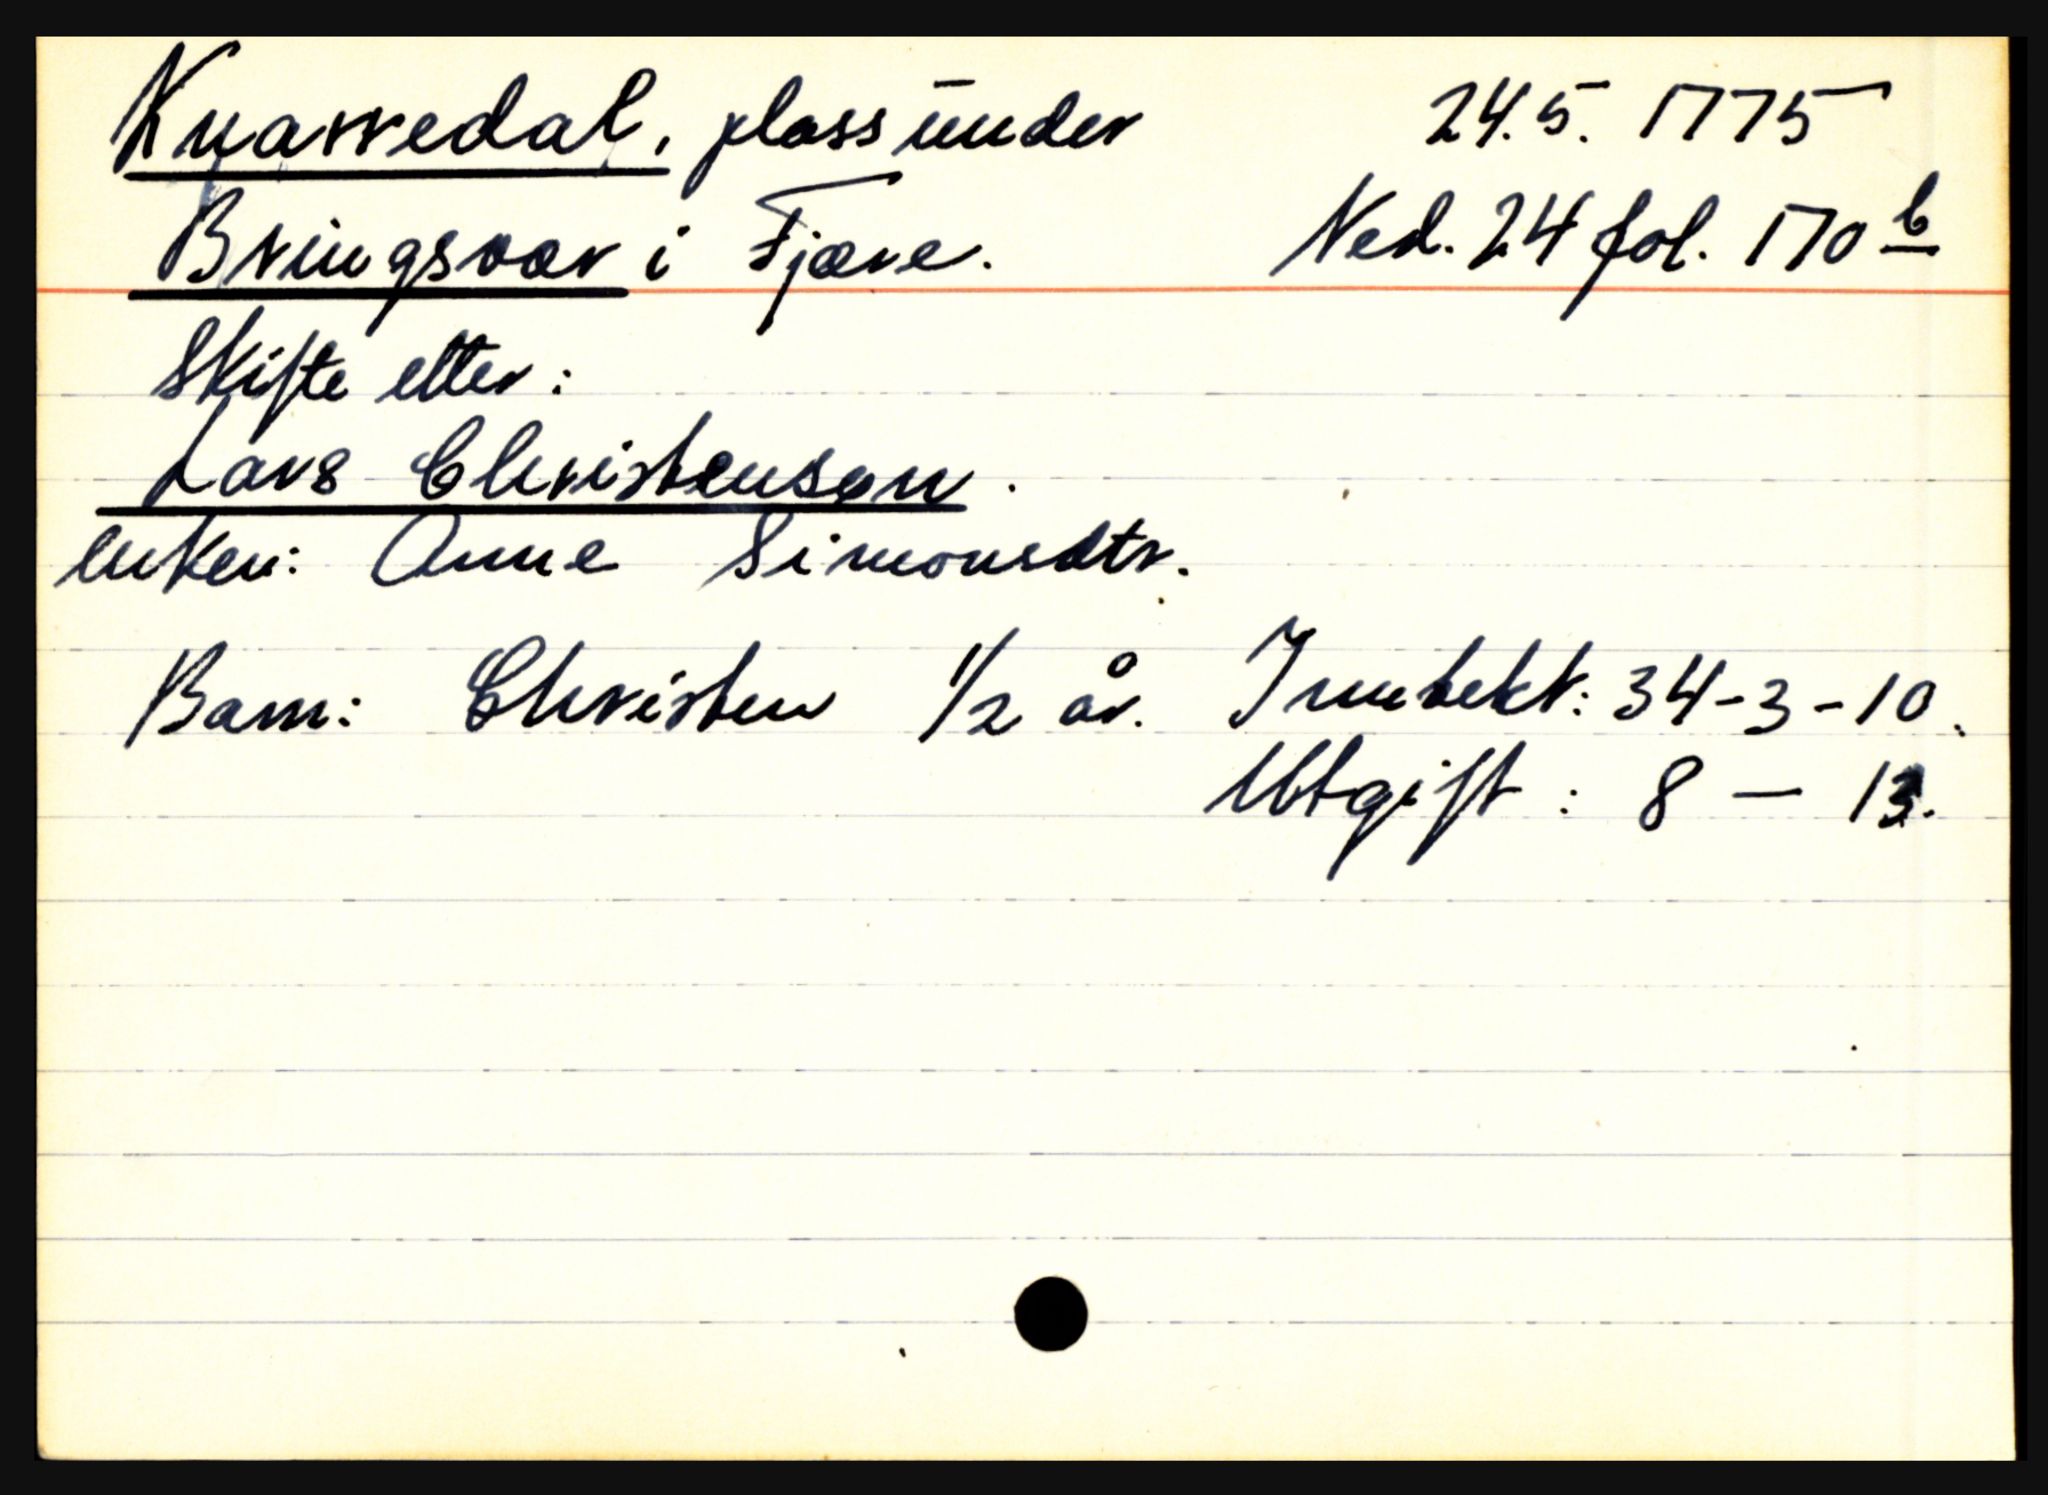 Knarredal, plass under 24.5. 1775
Bringsvær i Fjære. Ned. 24 fol. 170 b
Skifte etter:
Lars Christensen.
Enken: Anne Simonsdtr.
Barn: Christen 1/2 år. Inntekt: 34-3-10.
Utgift: 8 — 13.